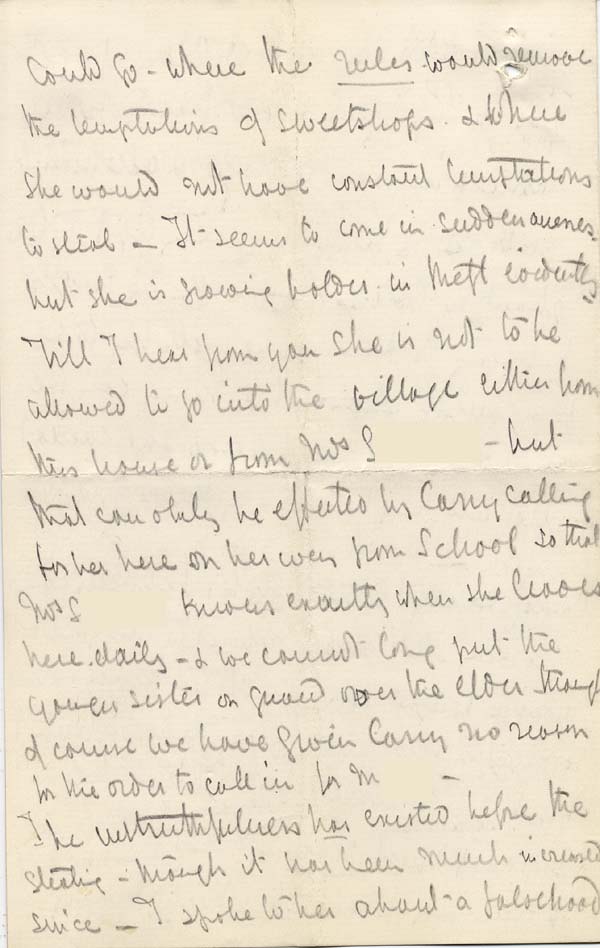 could go - where the rules would remove
the temptations of sweetshops. & where
she would not have constant temptations
to steal - It seems to come in suddenness
but she is growing bolder in theft evidently
Till I hear from you she is not to be
allowed to go into the village either from
this house or from Mrs S - but
that can only be effected by Carry calling
for her here on her way from School so that
Mrs S knows exactly when she leaves
here daily - & we cannot long put the
younger sister on guard over the elder though
of course we have given Carry no reason
for the order to call in for M -
The untruthfulness has existed before the
stealing - though it has been much increased
since - I spoke to her about a falsehood